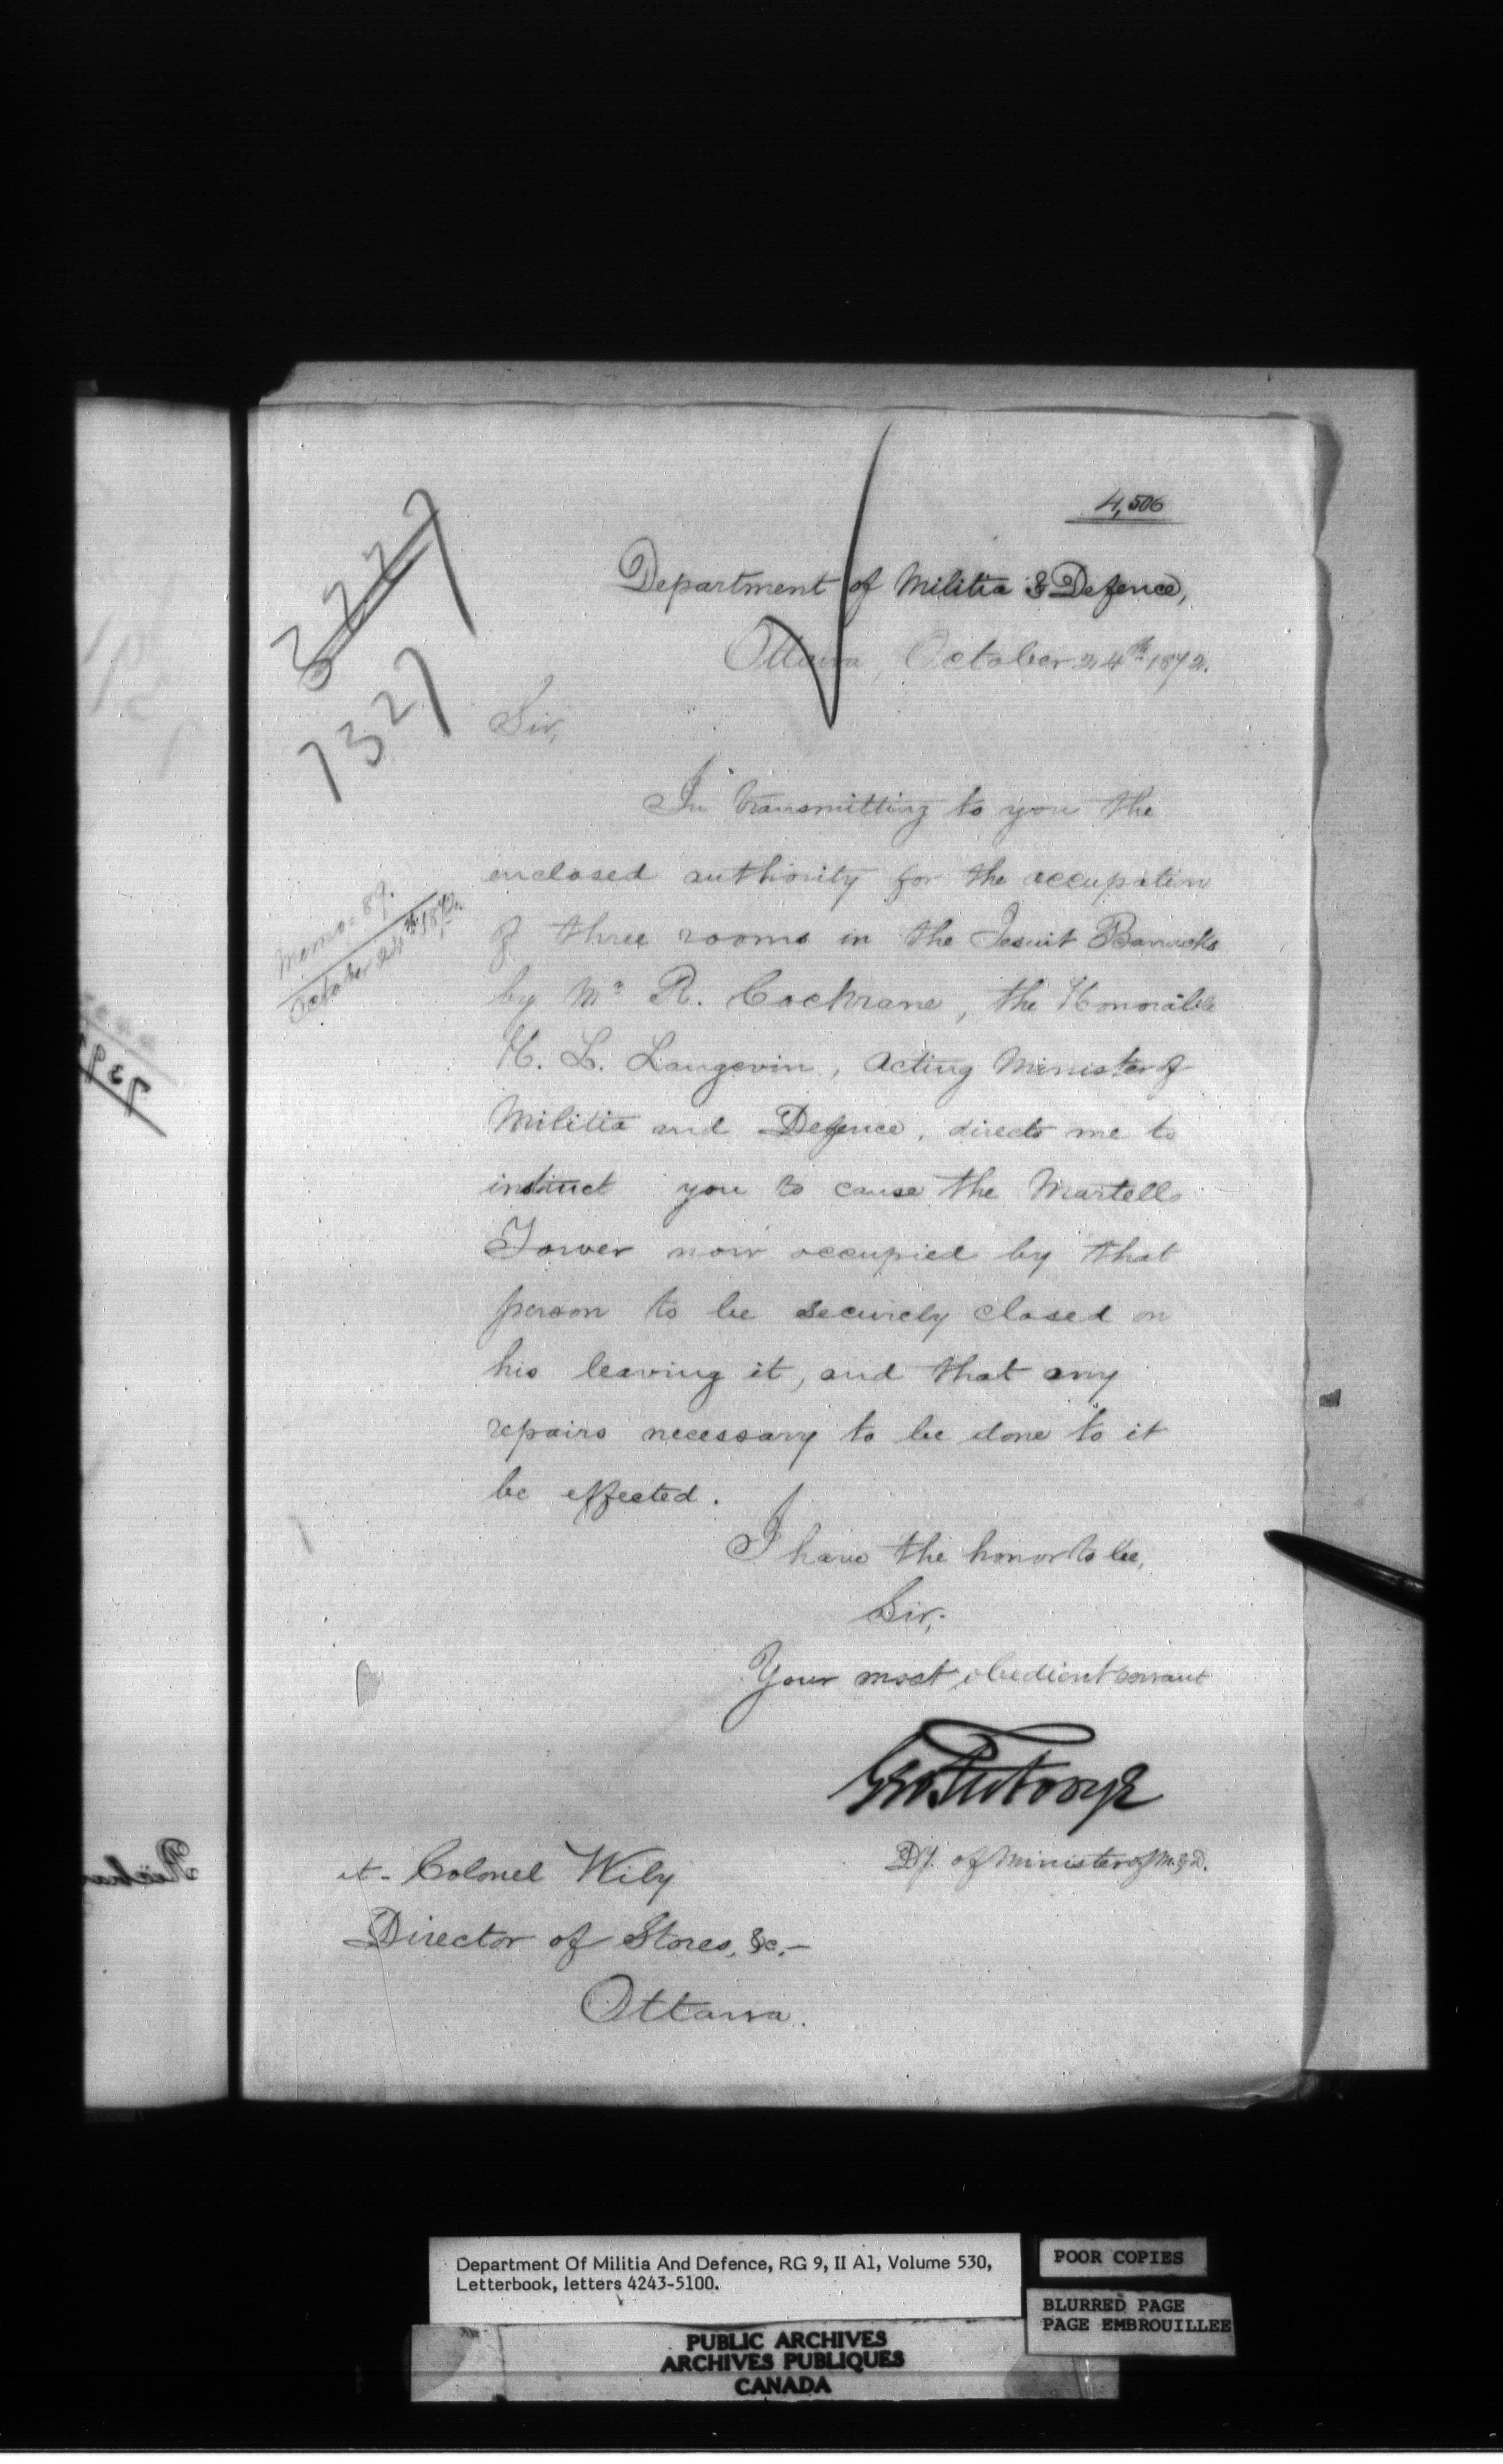 4,506
Department of Militia & Defence,
Ottawa, October 24th 1872.
7327
Sir,
In transmitting to you the
enclosed authority for the occupation
Memo: 89.
October 24th 1872.
of three rooms in the Jesuit Barracks
by Mr R. Cochrane, the Honorable
H. L. Langevin, Acting Minister of
Militia and Defence, directs me to
instruct you to cause the Martello
Tower now occupied by that
person to be securely closed on
his leaving it, and that any
repairs necessary to be done to it
be effected.
I have the honor to be,
Sir,
Your most obedient servant
Dy. of Minister of M. & D.
Lt. Colonel Wily
Director of Stores, &c.-
Ottawa.
Department Of Militia And Defence, RG 9, II A1, Volume 530,
Letterbook, letters 4243-5100.
POOR COPIES
BLURRED PAGE
PAGE EMBROUILLEE
PUBLIC ARCHIVES
ARCHIVES PUBLIQUES
CANADA